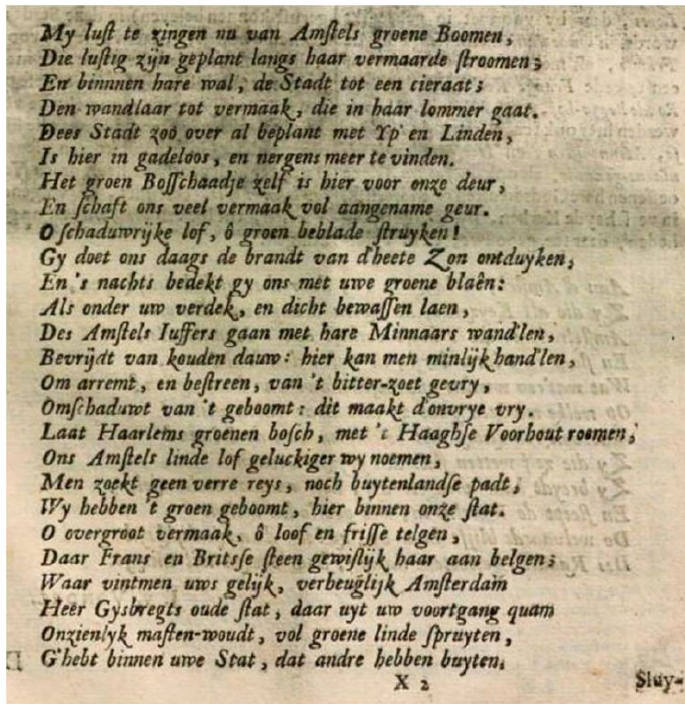 My lust te zingen nu van Amstels groene Boomen,
Die lustig zijn geplant langs haar vermaarde stroomen;
En binnnen hare wal, de Stadt tot een cieraat;
Den wandlaar tot vermaak, die in haar lommer gaat.
Dees Stadt zoo over al beplant met Yp en Linden,
Is hier in gadeloos, en nergens meer te vinden.
Het groen Bosschaadje zelf is hier voor onze deur,
En schaft ons veel vermaak vol aangename geur.
O schaduwrijke lof, ô groen beblade struyken!
Gy doet ons daags de brandt van d'heete Zon ontduyken,
En 's nachts bedekt gy ons met uwe groene blaên:
Als onder uw verdek, en dicht bewassen laen,
Des Amstels Iuffers gaan met hare Minnaars wand'len,
Bevrijdt van kouden dauw: hier kan men minlijk hand'len,
Om arremt, en bestreen, van 't bitter-zoet gevry,
Omschaduwt van 't geboomt: dit maakt d'onvrye vry.
Laat Haarlems groenen bosch, met 't Haaghse Voorhout roemen,
Ons Amstels linde lof geluckiger wy noemen,
Men zoekt geen verre reys, noch buytenlandse padt,
Wy hebben 't groen geboomt, hier binnen onze stat.
O overgroot vermaak, ô loof en frisse telgen,
Daar Frans en Britsse steen gewislijk haar aan belgen;
Waar vintmen uws gelijk, verheuglijk Amsterdam
Heer Gysbregts oude stat, daar uyt uw voortgang quam
Onzienlyk masten-woudt, vol groene linde spruyten,
G'hebt binnen uwe Stat, dat andre hebben buyten.
X 2
Sluy-